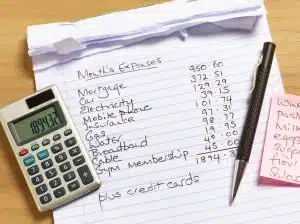 Month's Expenses
Mortgage 950.60
Car 372.51
Electricity 129.29
Mobile phone 39.15
Insurance 101.74
Gas 97.31
Water 98.77
Broadband 19.95
Cable 40.00
Gym Membership 45.00
1894.32
plus credit cards
1894.32
past
Mil
eggs